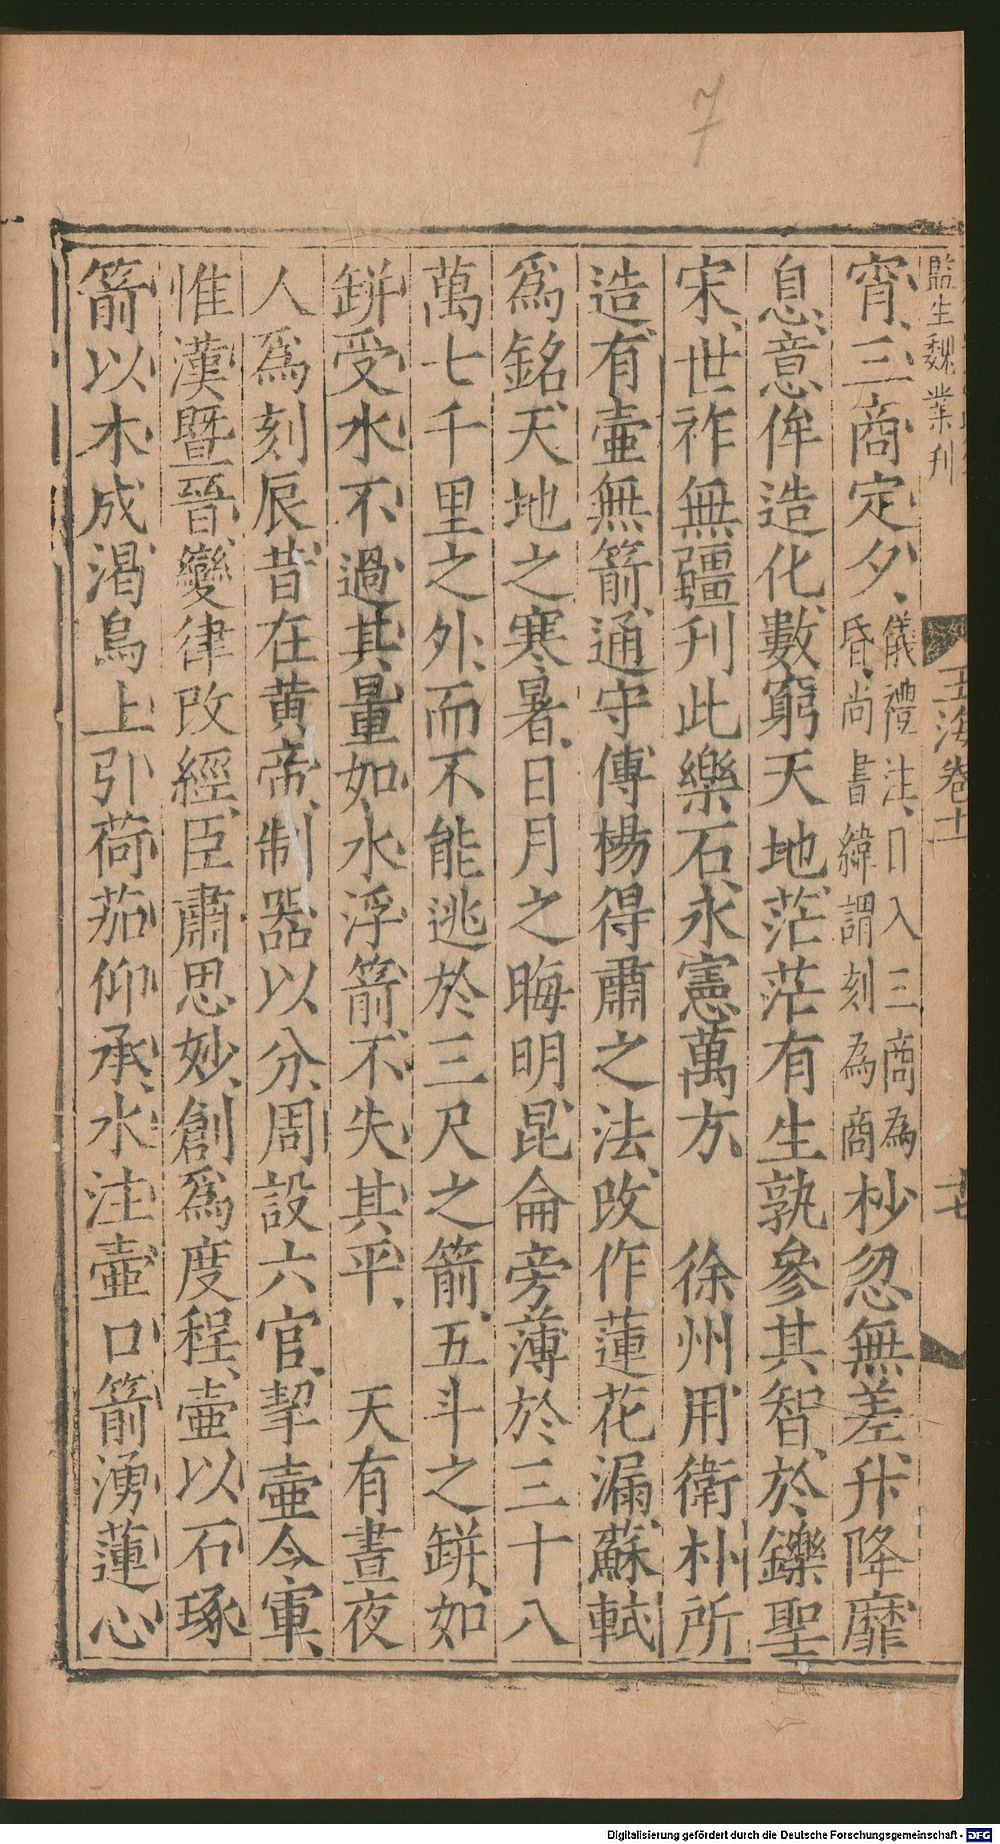 7
監生魏業刊
玉海卷十一
十七
宵、三商定夕、儀禮注、日入三商為昏、尚書緯謂刻為商杪忽無差、升降靡
息、意侔造化、數窮天地、茫茫有生、孰參其智、於鑠聖
宋、世祚無疆、刊此樂石、永憲萬方、 徐州用衛朴所
造、有壺無箭、通守傅楊得肅之法、改作蓮花漏、蘇軾
為銘、天地之寒暑、日月之晦明、昆侖旁薄於三十八
萬七千里之外、而不能逃於三尺之箭、五斗之缾、如
缾受水、不過其量、如水浮箭、不失其平、 天有晝夜
人爲刻辰、昔在黄帝、制器以分、周設六官、挈壺令軍、
惟漢暨晉、變律改經、臣肅思妙、創爲度程、壺以石琢
箭以木成、渴烏上引、荷茄仰承、水注壺口、箭湧蓮心
Digitalisierung gefördert durch die Deutsche Forschungsgemeinschaft - DFG